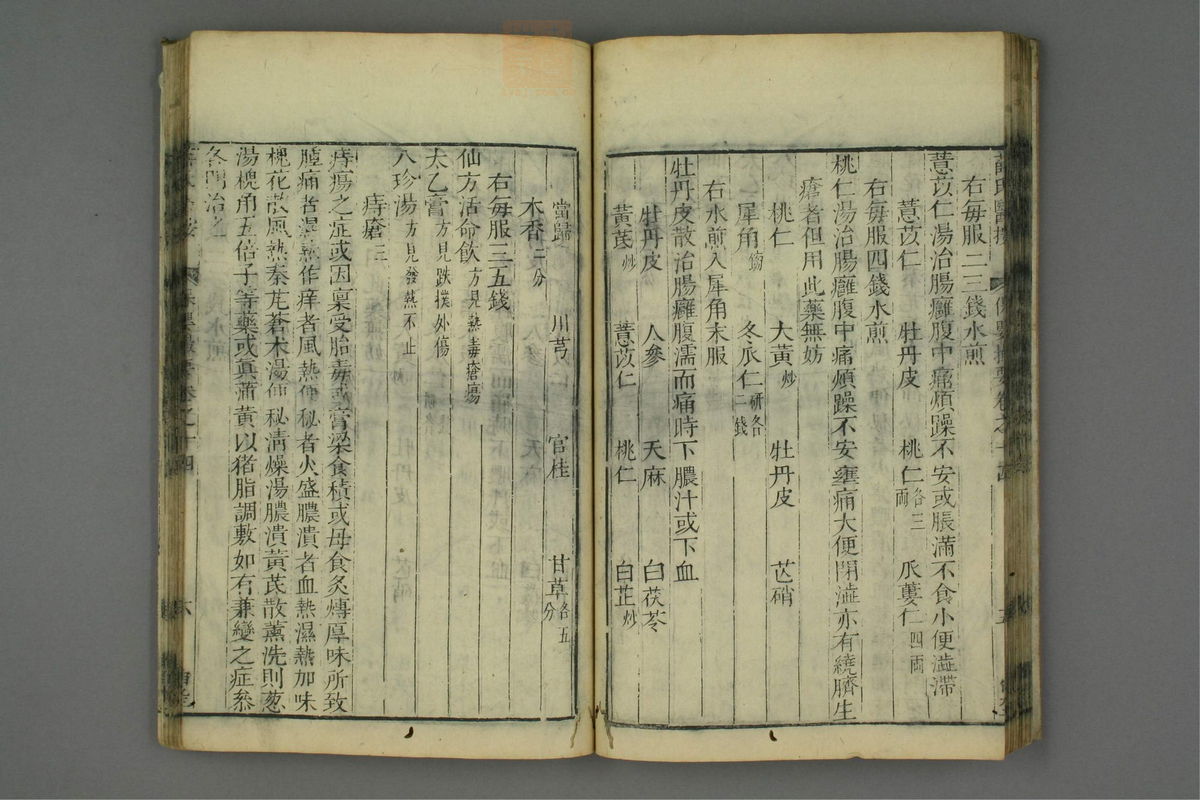 右每服二三錢水煎
薏苡仁湯治腸癰腹中痛煩躁不安或脹滿不食小便澁滯
薏苡仁 牡丹皮 桃仁各三兩 瓜蔞仁四兩
右每服四錢水煎
桃仁湯治腸癰腹中痛煩躁不安壅痛大便閉澁亦有繞臍生
瘡者但用此藥無妨
桃仁 大黃炒 牡丹皮 芒硝
犀角鎊 冬瓜仁研各二錢
右水煎入犀角末服
牡丹皮散治腸癰腹濡而痛時下膿汁或下血
牡丹皮 人參 天麻 白茯苓
黃芪炒 薏苡仁 桃仁 白芷炒
當歸 川芎 官桂 甘草各五分
木香二分
右每服三五錢
仙方活命飲方見熱毒瘡瘍
太乙膏方見跌撲外傷
八珍湯方見發熱不止
痔瘡三
痔瘍之症或因稟受胎毒或膏粱食積或母食炙煿厚味所致
腫痛者濕熱作痒者風熱便秘者火盛膿潰者血熱濕熱加味
槐花散風熱秦艽蒼朮湯便秘清燥湯膿潰黃芪散薰洗則葱
湯槐角五倍子等藥或真蒲黃以猪脂調敷如有兼變之症叅
各門治之